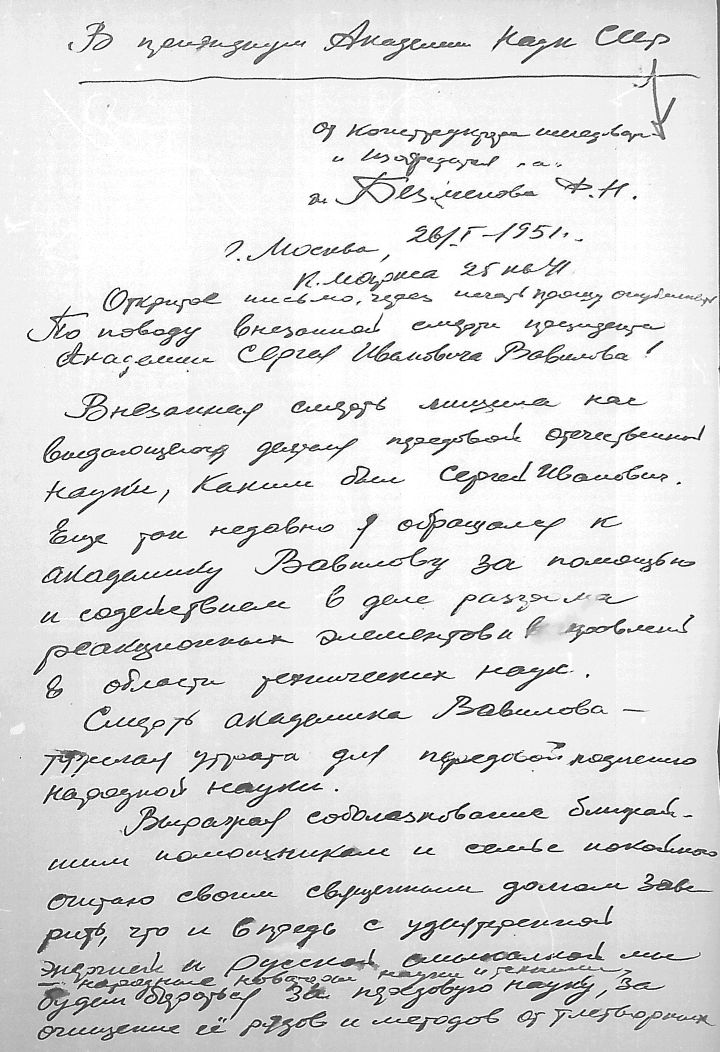 В президиум Академии Наук СССР
от конструктора
и изобретателя
т. Безменова Ф.Н.
г. Москва, 26/I-1951г.
К. Маркса 25 кв 41
Открытое письмо, через печать прошу опубликовать
По поводу внезапной смерти президента
Академии Сергея Ивановича Вавилова!
Внезапная смерть лишила нас
выдающегося деятеля передовой отечественной
науки, каким был Сергей Иванович.
Еще так недавно я обращался к
академику Вавилову за помощью
и содействием в деле разгрома
реакционных элементов и проявлений
в области технических наук.
Смерть академика Вавилова —
тяжелая утрата для передовой подлинно
народной науки.
Выражая соболезнование ближай-
шим помощникам и семье покойного
считаю своим священным долгом заве-
рить, что и впредь с удвоенной
энергией и русской смекалкой мы
— народные новаторы науки и техники,
будем бороться за передовую науку, за
очищение её рядов и методов от тлетворных